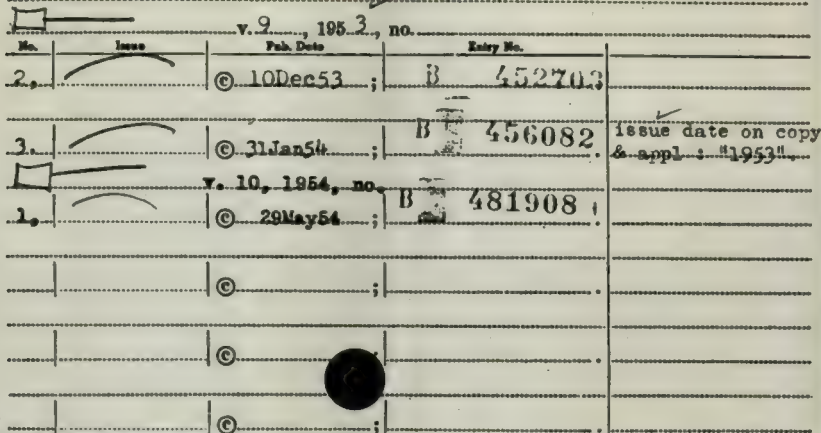 v. 9, 1953, no.
No. Issue Pub. Date Entry No.
2, © 10Dec53 ; B 452703
3. © 31Jan54 ; B 456082. issue date on copy
& appl : "1953".
v. 10, 1954, no.
1, © 29May54 ; B 481908
© ; .
© ; .
© ; .